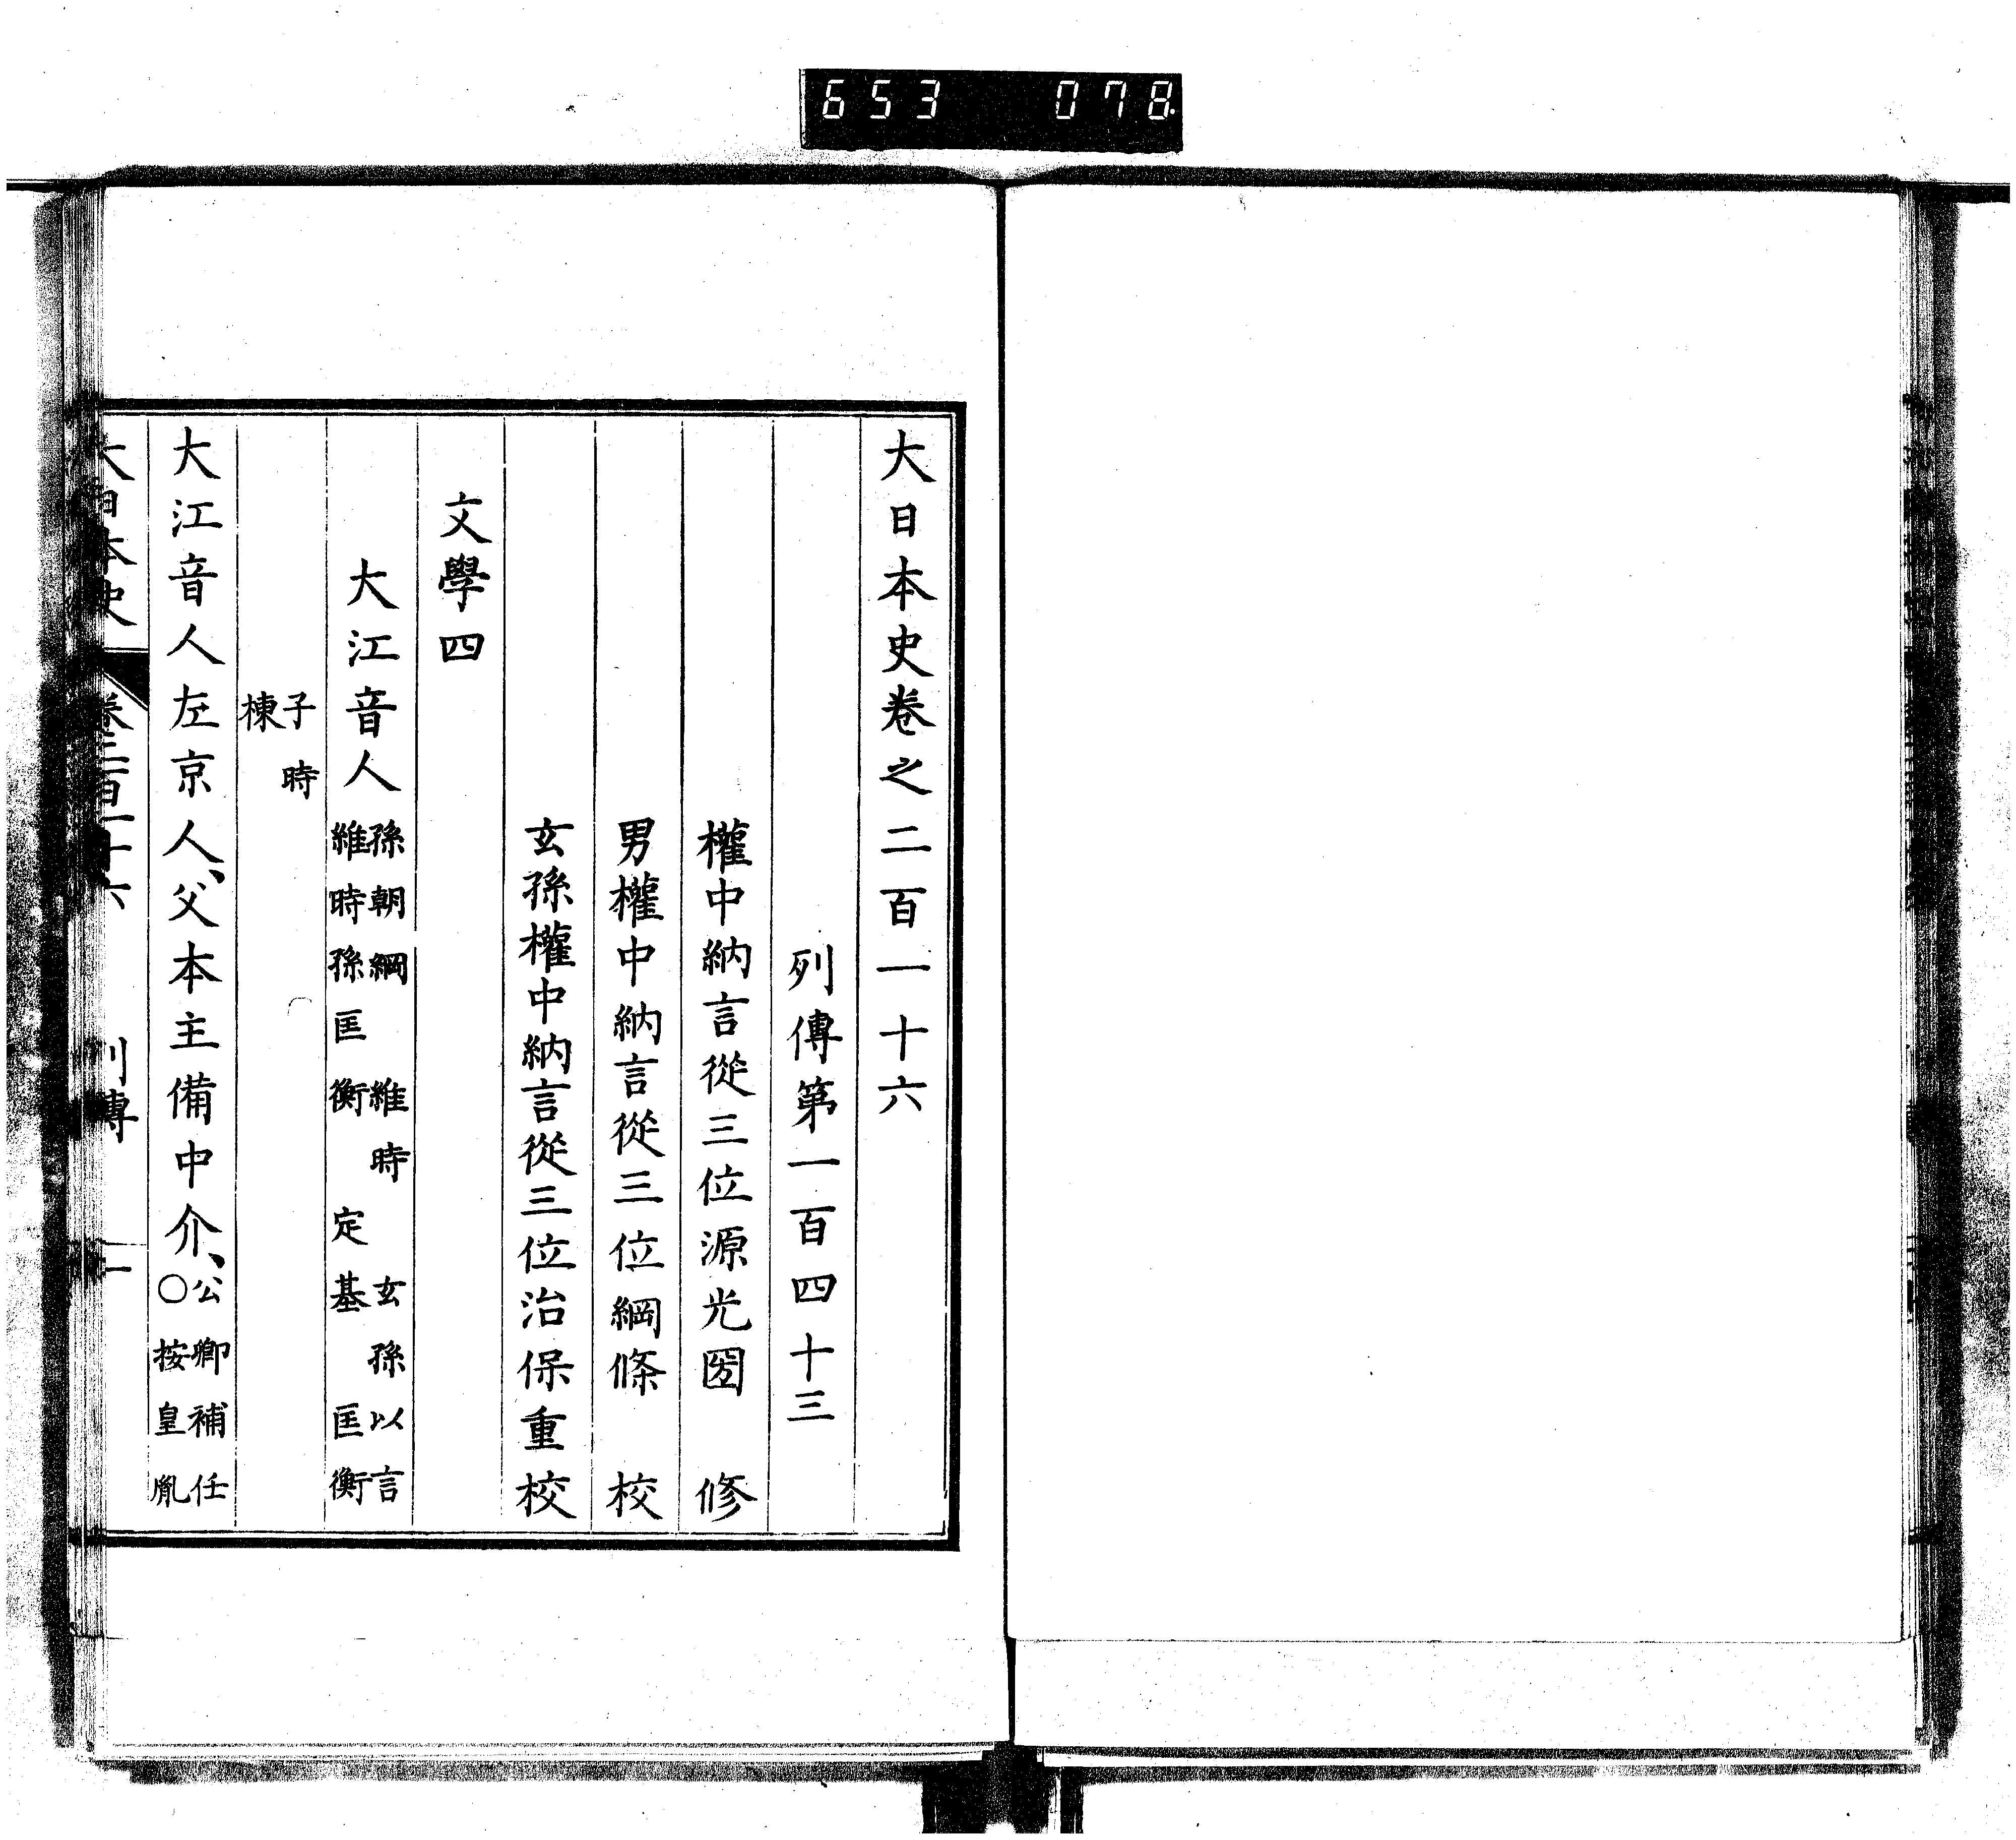 653 078
大日本史卷之二百一十六
列傳第一百四十三
權中納言從三位源光圀 修
男權中納言從三位綱條 校
玄孫權中納言從三位治保重校
文學四
大江音人 孫朝綱 維時 玄孫以言
維時孫匡衡 定基 匡衡
子時
棟
大江音人左京人、父本主備中介、公卿補任
○按皇胤
大日本史 卷二百一十六 列傳 一